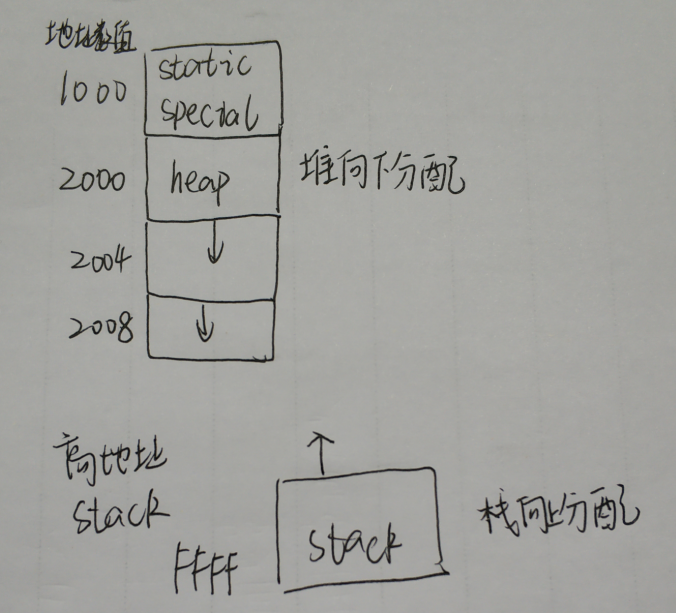 地址数值
1000
static
special
2000
heap
堆向下分配
2004
2008
高地址
stack
FFFF
stack
栈向上分配